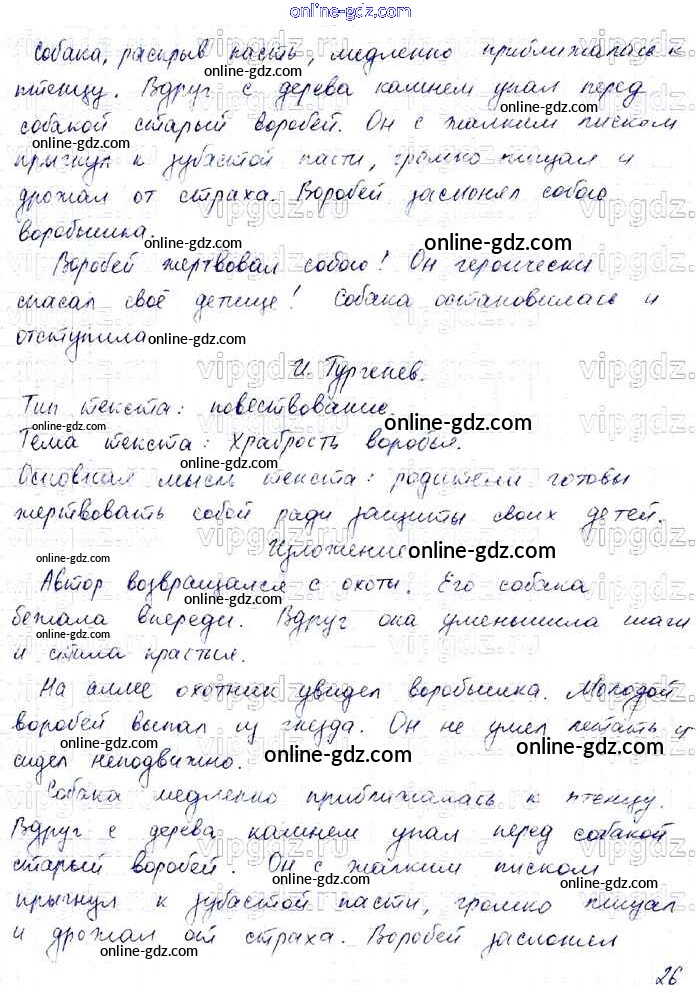 online-gdz.com
Собака, раскрыв пасть, медленно приближалась к
птенцу. Вдруг с дерева камнем упал перед
собакой старый воробей. Он с жалким писком
прыгнул к зубастой пасти, громко пищал и
дрожал от страха. Воробей заслонял собою
воробышка.
Воробей жертвовал собою! Он героически
спасал своё детище! Собака остановилась и
отступила
И. Тургенев.
Тип текста: повествование.
Тема текста: храбрость воробья.
Основная мысль текста: родители готовы
жертвовать собой ради защиты своих детей.
Изложение
Автор возвращался с охоты. Его собака
бежала впереди. Вдруг она уменьшила шаги
и стала красться.
На аллее охотник увидел воробышка. Молодой
воробей выпал из гнезда. Он не умел летать и
сидел неподвижно.
Собака медленно приближалась к птенцу.
Вдруг с дерева камнем упал перед собакой
старый воробей. Он с жалким писком
прыгнул к зубастой пасти, громко пищал
и дрожал от страха. Воробей заслонял
26